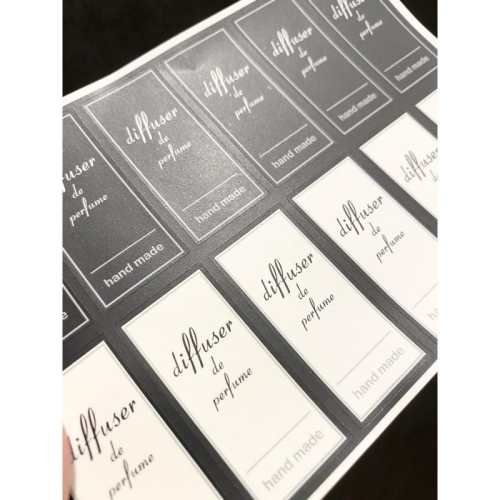 ffuser
de
perfume
hand made
diffuser
de
perfume
hand made
diffuser
de
perfume
hand made
diffuser
de
perfume
hand made
diffuser
de
perfume
hand made
diffuser
de
perfume
diffuser
de
perfume
hand made
diffuser
de
perfume
hand made
diffuser
de
perfume